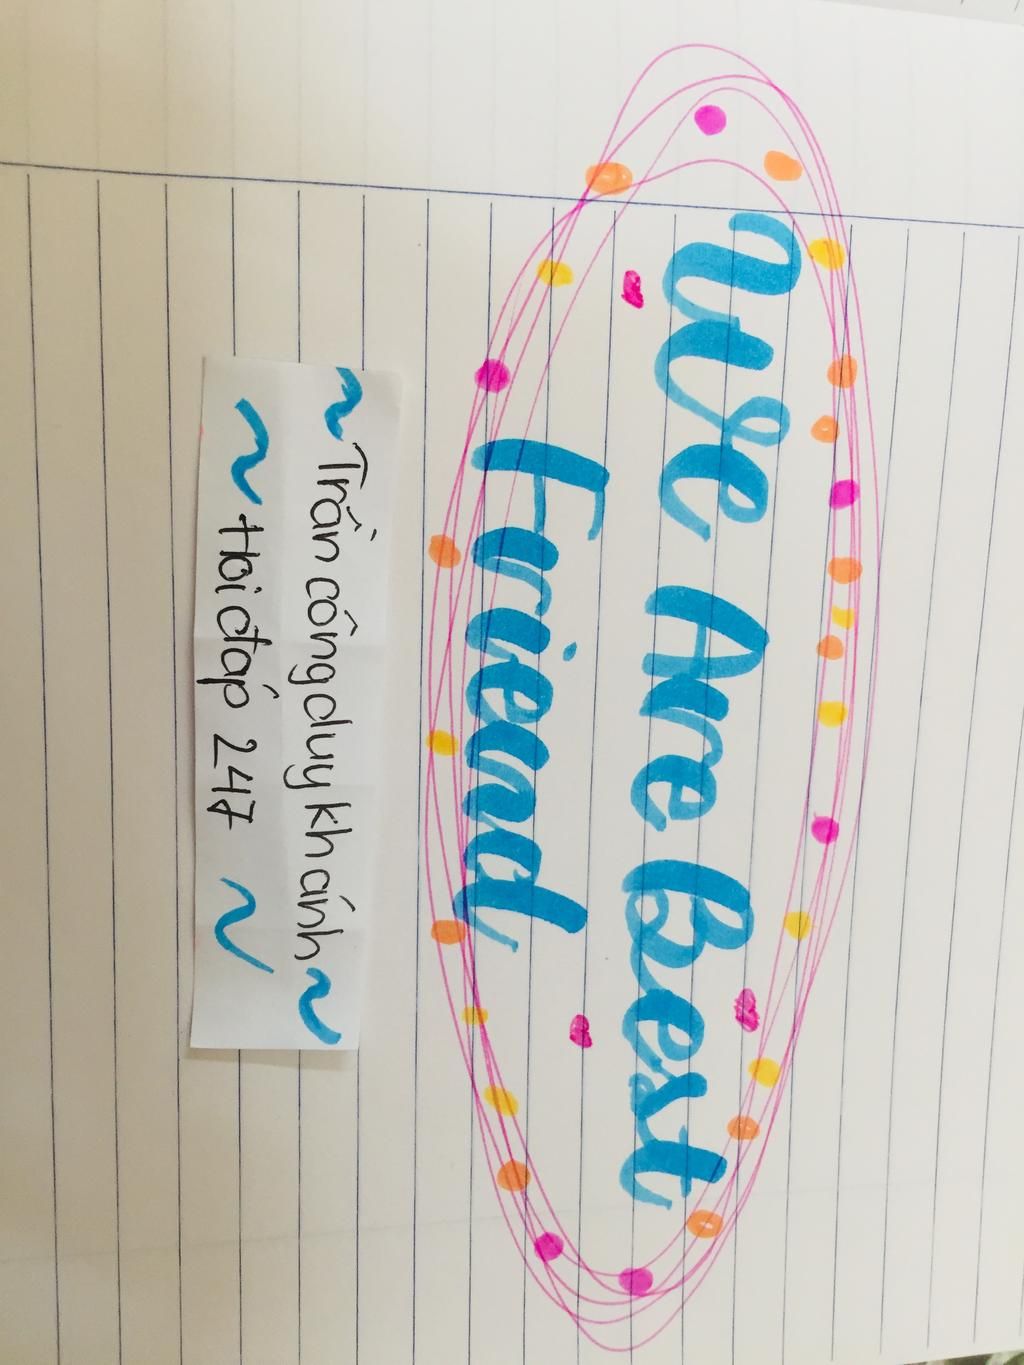 We Are Best
Friend
~ Trần công duy khánh ~
~ Hoi đáp 247 ~